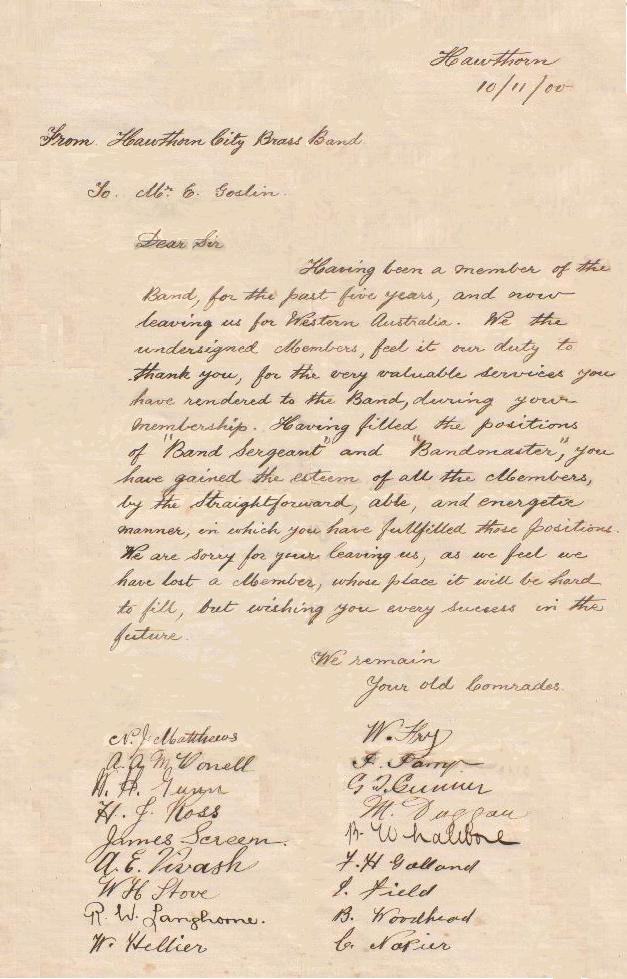 Hawthorn
10/11/00
From Hawthorn City Brass Band
To. Mr. E. Goslin.
Dear Sir
Having been a member of the
Band, for the past five years, and now
leaving us for Western Australia. We the
undersigned Members, feel it our duty to
thank you, for the very valuable services you
have rendered to the Band, during your
membership. Having filled the positions
of "Band Sergeant" and "Bandmaster," you
have gained the esteem of all the Members,
by the Straightforward, able, and energetic
manner, in which you have fullfilled those positions.
We are sorry for your leaving us, as we feel we
have lost a Member, whose place it will be hard
to fill, but wishing you every success in the
future.
We remain
Your old Comrades.
N. J. Matthews
A. A. McDonell
H. J. Ross
James Screen.
A. E. Vivash
W H Stove
R. W. Langhorne.
W. Hellier
W. Fry
G. T. Gunner
M. Duggan
B. Whalebone
F. H Golland
Field
B. Woodhead
C. Napier